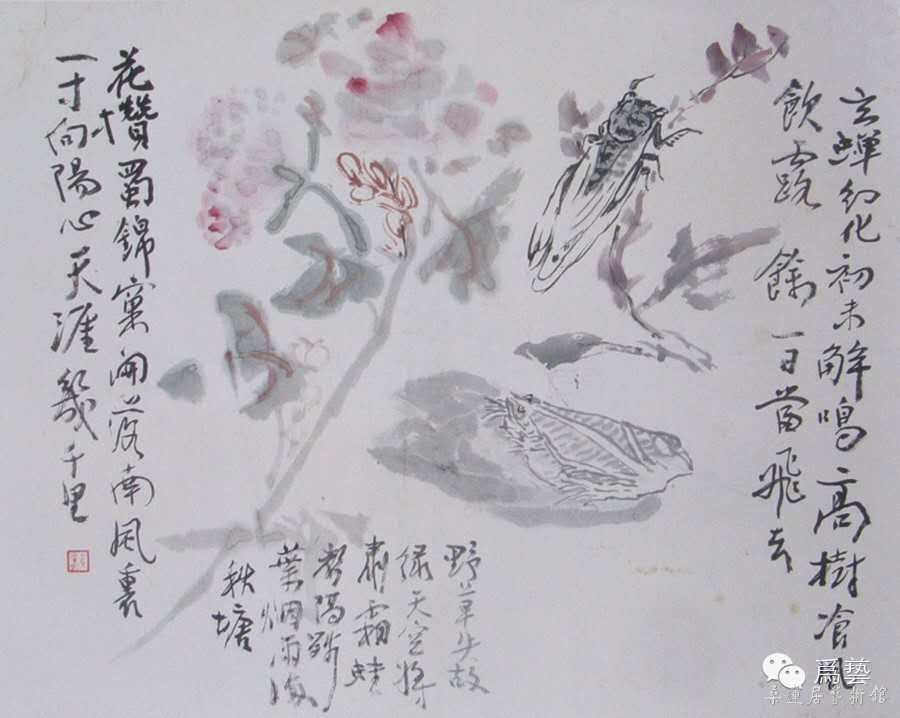 玄蟬幻化初未解鳴高樹飡風
飲露餘一日當飛去
野草失故
綠天空將
肅霜蛙
聲隔疎
葉烟雨滿
秋塘
花攢蜀錦窠開落南風裏
一寸向陽心天涯幾千里
爲藝
居藝術館